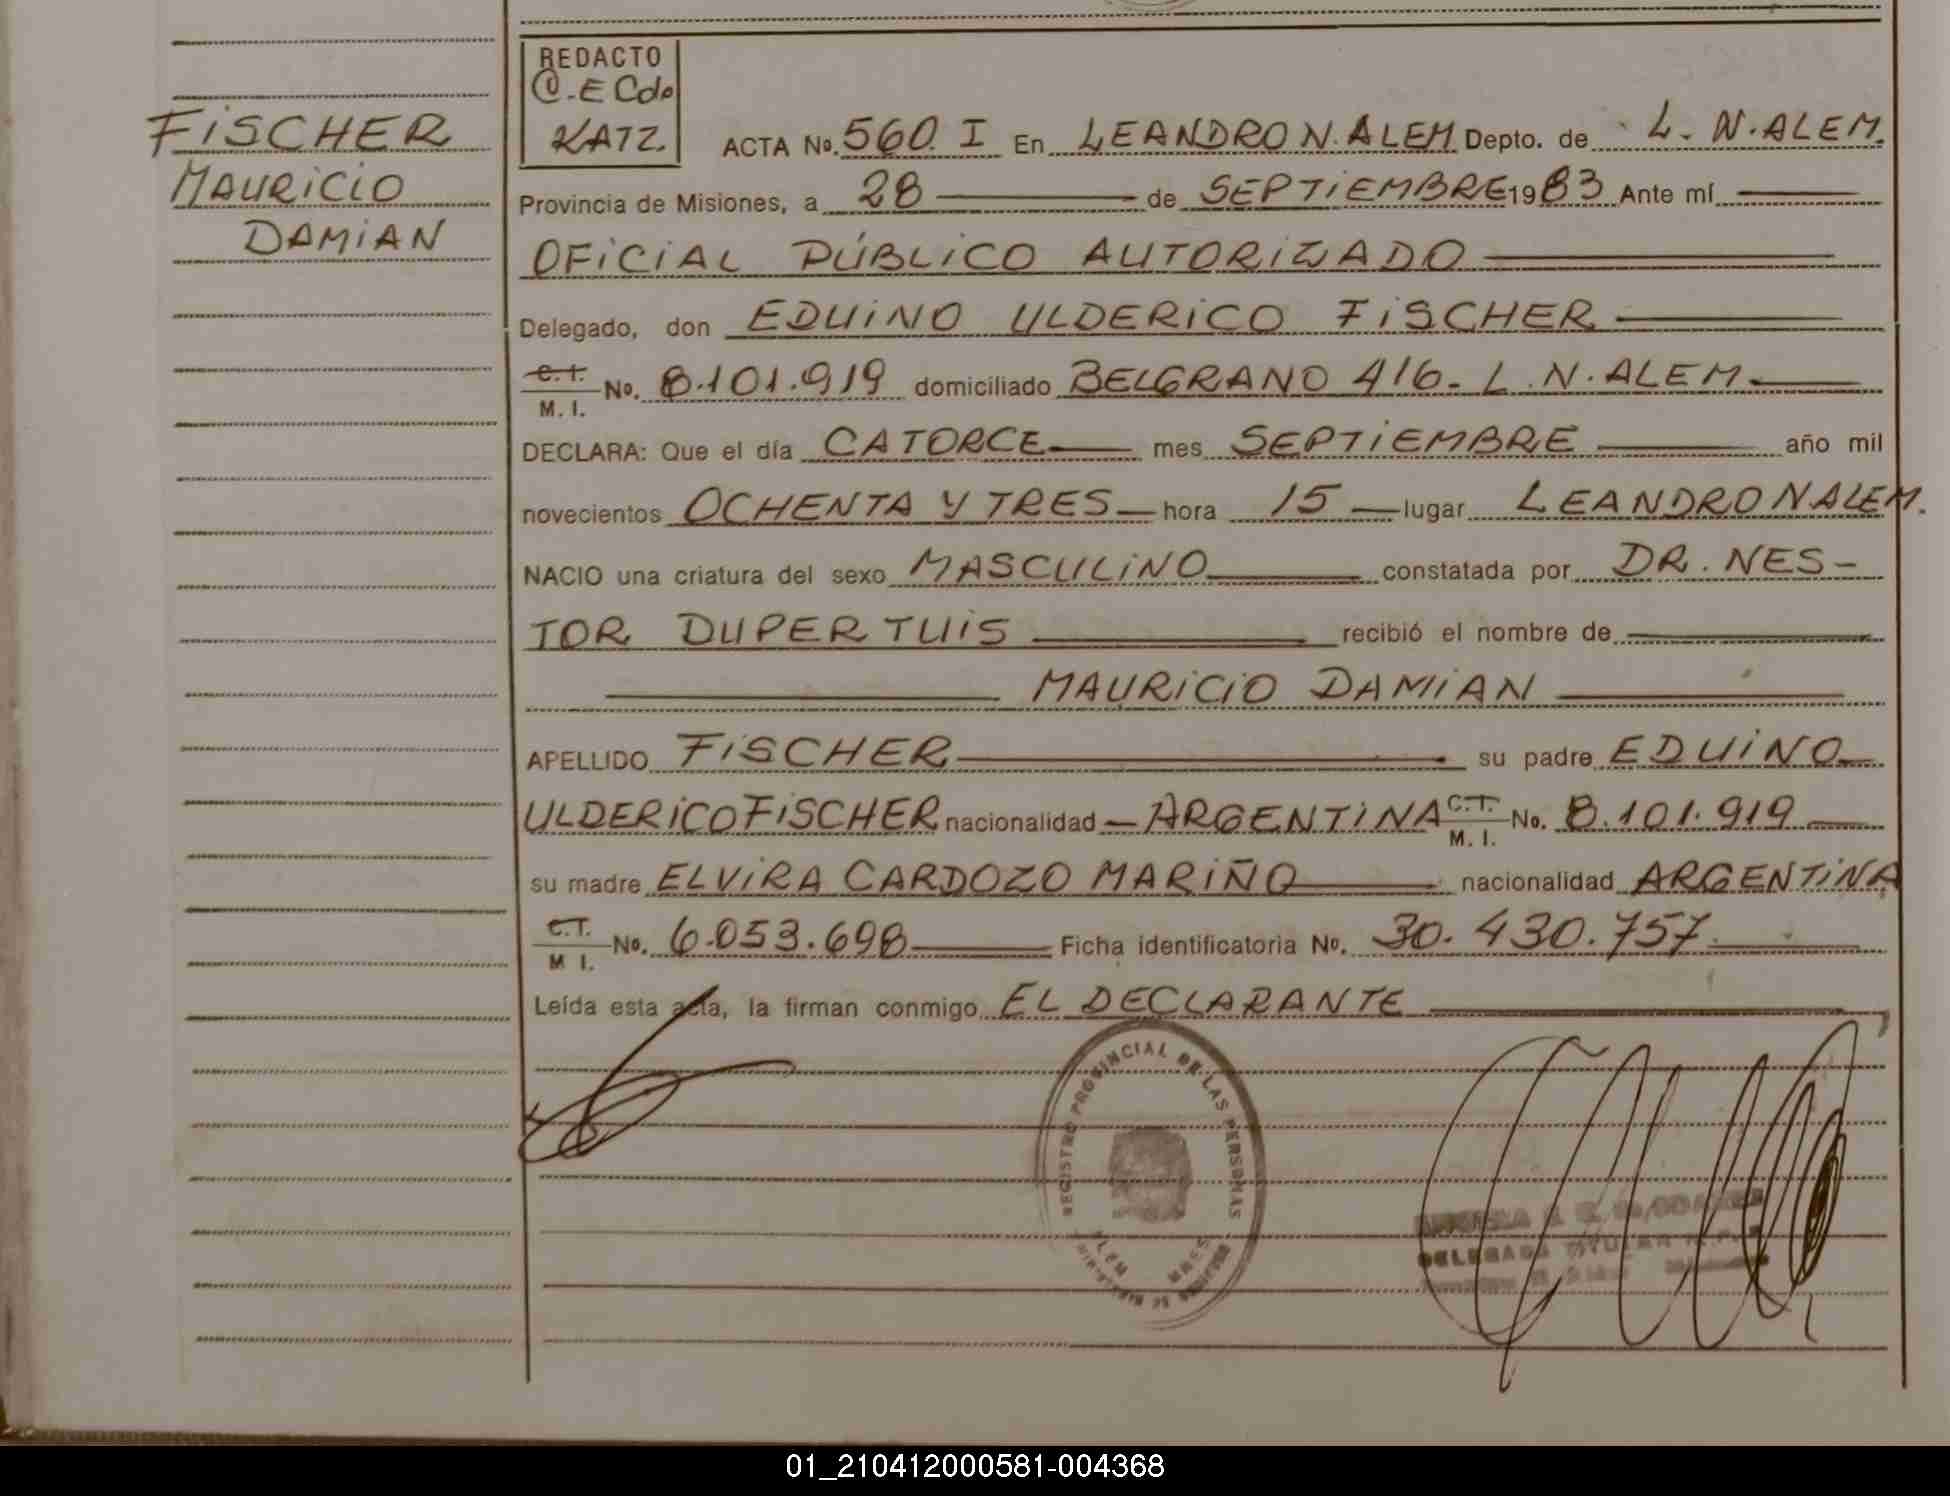 FISCHER
MAURICIO
DAMIAN
REDACTO
C.E Cdo
KATZ.
ACTA No. 560. I En LEANDRO N. ALEM Depto. de L. N. ALEM.
Provincia de Misiones, a 28 de SEPTIEMBRE 1983 Ante mí
OFICIAL PÚBLICO AUTORIZADO
Delegado, don EDUINO ULDERICO FISCHER
C.I. M. I. No. 8.101.919 domiciliado BELGRANO 416- L. N. ALEM
DECLARA: Que el día CATORCE mes SEPTIEMBRE año mil
novecientos OCHENTA Y TRES hora 15 lugar LEANDRO N ALEM.
NACIO una criatura del sexo MASCULINO constatada por DR. NES-
TOR DUPERTUIS recibió el nombre de
MAURICIO DAMIAN
APELLIDO FISCHER su padre EDUINO
ULDERICO FISCHER nacionalidad ARGENTINA C.I. M. I. No. 8.101.919
su madre ELVIRA CARDOZO MARIÑO nacionalidad ARGENTINA
C.I. M I. No. 6.053.698 Ficha identificatoria No. 30.430.757
Leída esta acta, la firman conmigo EL DECLARANTE
REGISTRO PROVINCIAL DE LAS PERSONAS
ALEM MNES
DELEGADO TITULAR
01_210412000581-004368